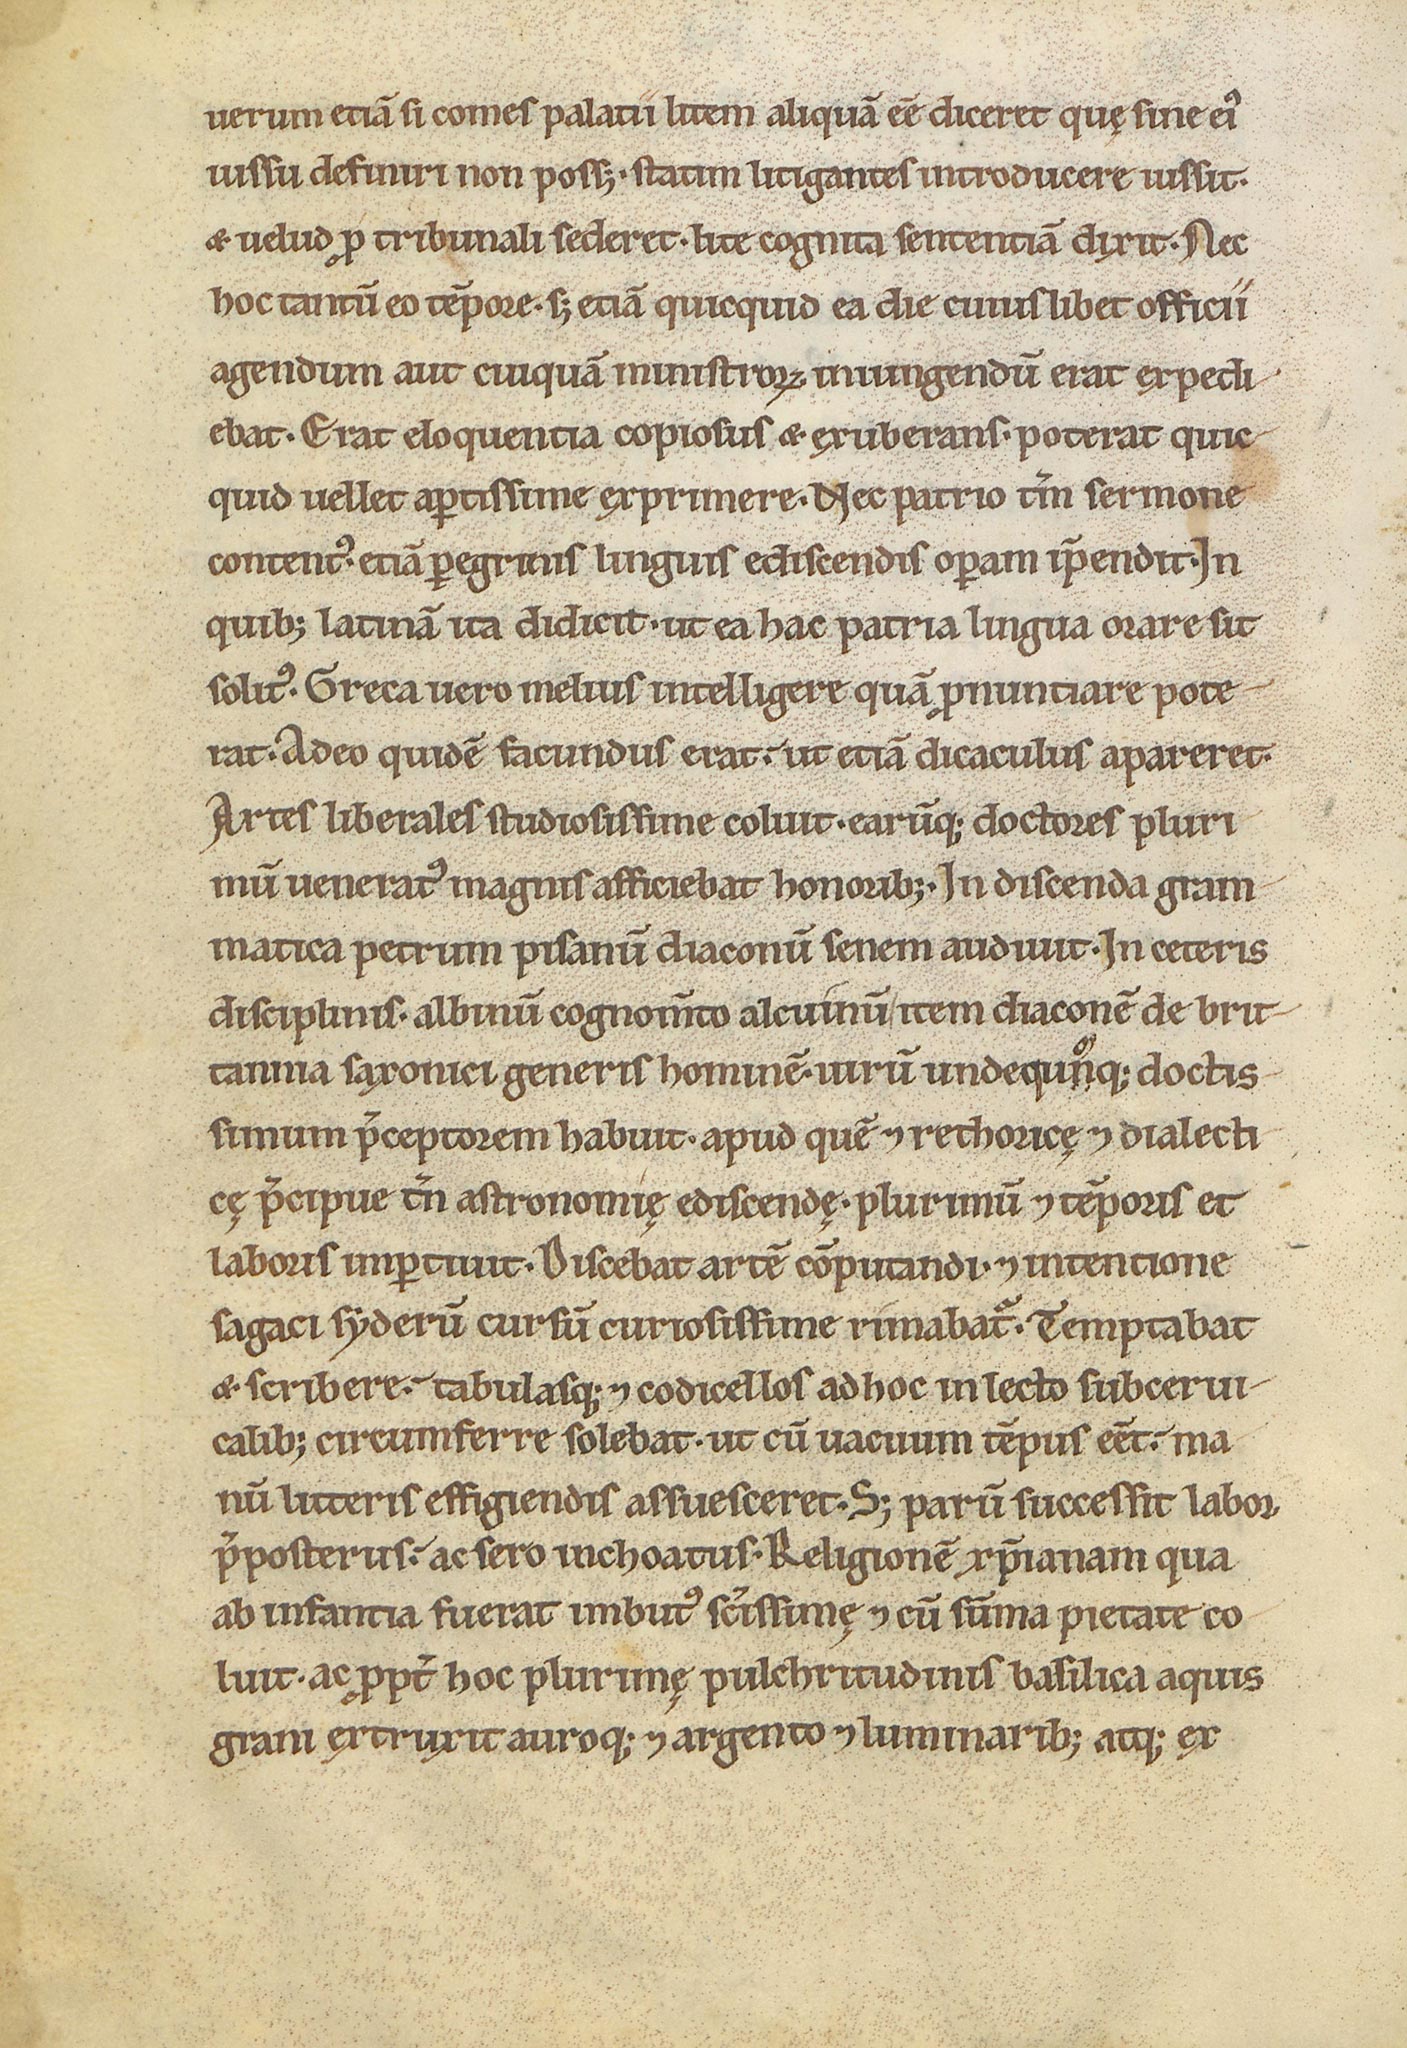 uerum etiā si comes palatii litem aliquā eē diceret quę sine ei᾽
iussu definiri non poss;· statim litigantes introducere iussit·
& uelud ꝓ tribunali sederet· lite cognita sententiā dixit· Nec
hoc tantū eo tēpore· s; etiā quicquid ea die cuius libet officii
agendum aut cuiquā ministroꝝ iniungendū erat expedi
ebat· Erat eloquentia copiosus & exuberans· poterat quic
quid uellet aꝑtissime exprimere· Nec patrio tm̄ sermone
content᾽· etiā ꝑegrinis linguis ediscendis oꝑam īpendit· In
quib; latinā ita didicit· ut ea hac patria lingua orare sit
solit᾽· Greca uero melius intelligere quā ꝓnuntiare pote
rat· Adeo quidē facundus erat· ut etiā dicaculus apareret·
Artes liberales studiosissime coluit· earūq; doctores pluri
mū uenerat᾽ magnis afficiebat honorib;· In discenda gram
matica petrum pisanū diaconū senem audiuit· In ceteris
disciplinis· albinū cognom̄to alcuinū item diaconē de brit
tannia saxonici generis hominē· uirū undecūnq; doctis
simum p̄ceptorem habuit· apud quē ⁊ rethoricę ⁊ dialecti
cę p̄cipue tn̄ astronomię ediscendę· plurimū ⁊ tēporis et
laboris imꝑtiuit· Discebat artē cōputandi· ⁊ intentione
sagaci syderū cursū curiosissime rimabat᷑· Temptabat
& scribere· tabulasq; ⁊ codicellos ad hoc in lecto sub cerui
calib; circumferre solebat· ut cū uacuum tēpus eēt· ma
nū litteris effigiendis assuesceret· S; parū successit labor
p̄posterus· ac sero inchoatus· Religionē xp̄ianam qua
ab infantia fuerat imbut᾽ sc̄issimę ⁊ cū sūma pietate co
luit· ac ꝓpt̄ hoc plurimę pulchritudinis basilica aquis
grani extruxit auroq; ⁊ argento ⁊ luminarib; atq; ex